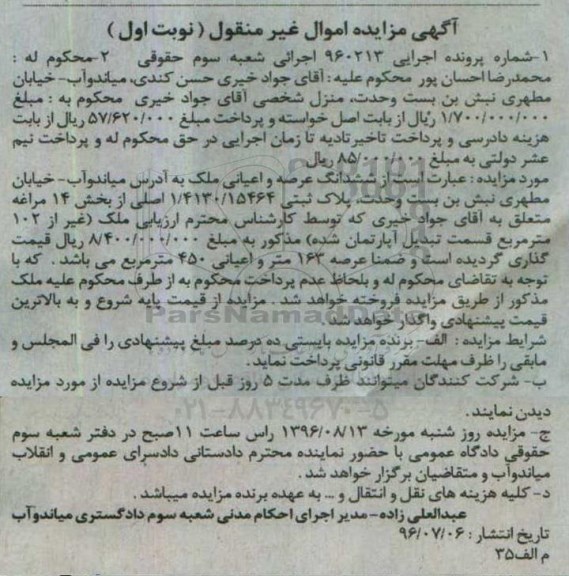 آگهی مزایده اموال غیر منقول ( نوبت اول )
۱-شماره پرونده اجرایی ۹۶۰۲۱۳ اجرائی شعبه سوم حقوقی ۲-محکوم له :
محمدرضا احسان پور محکوم علیه : آقای جواد خیری حسن کندی، میاندوآب- خیابان
مطهری نبش بن بست وحدت، منزل شخصی آقای جواد خیری محکوم به : مبلغ
۱/۷۰۰/۰۰۰/۰۰۰ ریال از بابت اصل خواسته و پرداخت مبلغ ۵۷/۶۲۰/۰۰۰ ریال از بابت
هزینه دادرسی و پرداخت تاخیر تادیه تا زمان اجرایی در حق محکوم له و پرداخت نیم
عشر دولتی به مبلغ ۸۵/۰۰۰/۰۰۰ ریال
مورد مزایده : عبارت است از ششدانگ عرصه و اعیانی ملک به آدرس میاندوآب- خیابان
مطهری نبش بن بست وحدت، پلاک ثبتی ۱/۴۱۳۰/۱۵۴۶۴ اصلی از بخش ۱۴ مراغه
متعلق به آقای جواد خیری که توسط کارشناس محترم ارزیابی ملک (غیر از ۱۰۲
مترمربع قسمت تبدیل آپارتمان شده) مذکور به مبلغ ۸/۴۰۰/۰۰۰/۰۰۰ ریال قیمت
گذاری گردیده است و ضمنا عرصه ۱۶۳ متر و اعیانی ۴۵۰ مترمربع می باشد . که با
توجه به تقاضای محکوم له و بلحاظ عدم پرداخت محکوم به از طرف محکوم علیه ملک
مذکور از طریق مزایده فروخته خواهد شد . مزایده از قیمت پایه شروع و به بالاترین
قیمت پیشنهادی واگذار خواهد شد
شرایط مزایده : الف- برنده مزایده بایستی ده درصد مبلغ پیشنهادی را فی المجلس و
مابقی را ظرف مهلت مقرر قانونی پرداخت نماید.
ب- شرکت کنندگان میتوانند ظرف مدت ۵ روز قبل از شروع مزایده از مورد مزایده
دیدن نمایند .
ج- مزایده روز شنبه مورخه ۱۳۹۶/۰۸/۱۳ راس ساعت ۱۱صبح در دفتر شعبه سوم
حقوقی دادگاه عمومی با حضور نماینده محترم دادستانی دادسرای عمومی و انقلاب
میاندوآب و متقاضیان برگزار خواهد شد .
د- کلیه هزینه های نقل و انتقال و ... به عهده برنده مزایده میباشد .
عبدالعلی زاده - مدیر اجرای احکام مدنی شعبه سوم دادگستری میاندوآب
تاریخ انتشار : ۹۶/۰۷/۰۶
م الف۳۵
ParsNamadData
۰۲۱-۸۸۳۴۹۶۷۰-۵